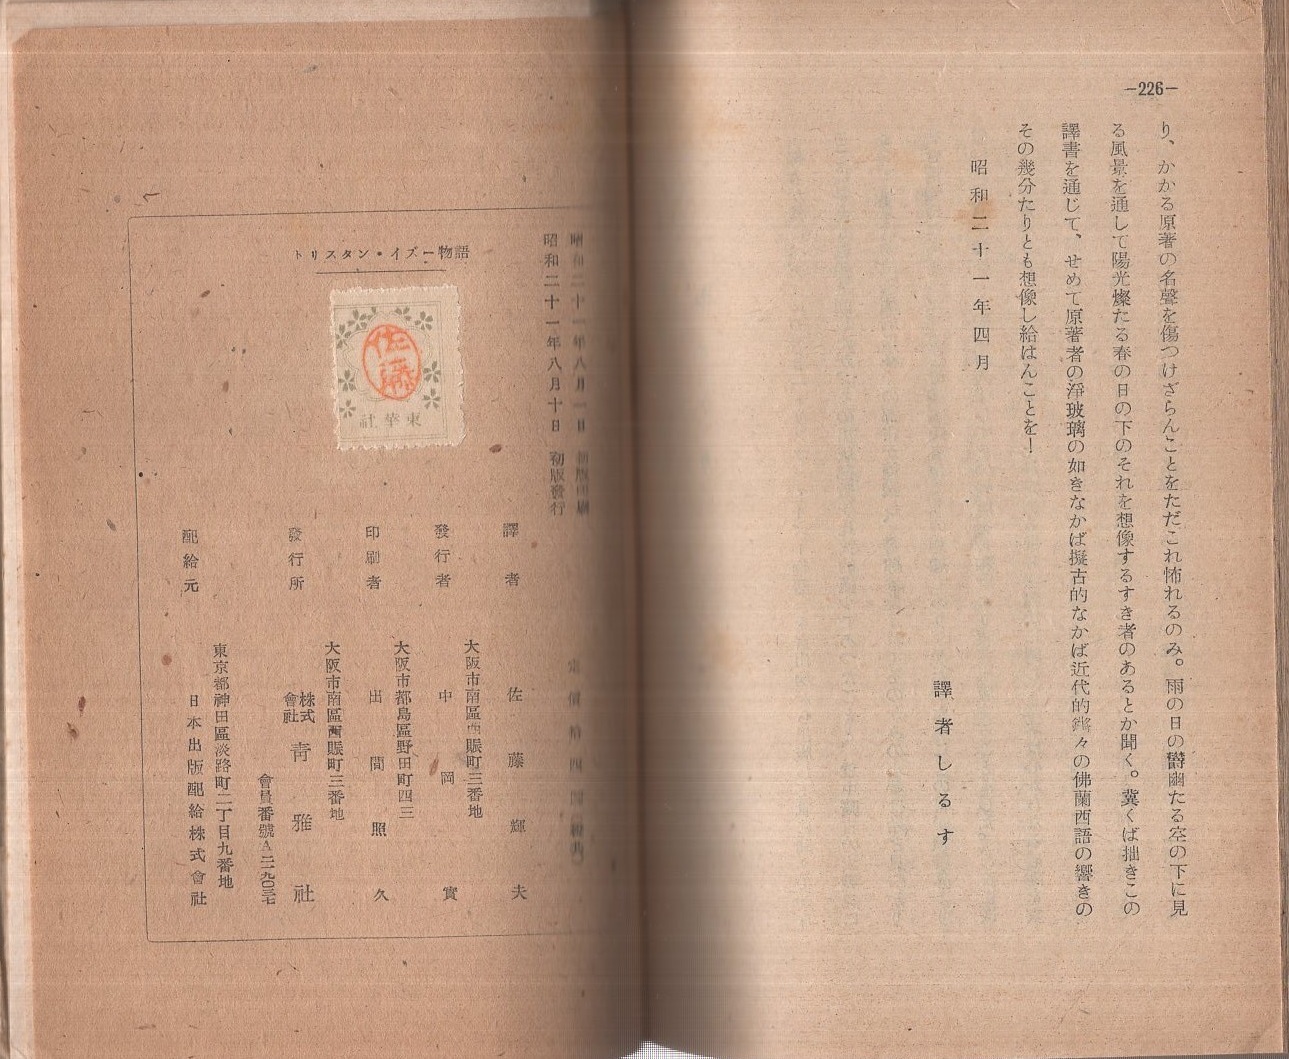 —226—
り、かかる原著の名聲を傷つけざらんことをただこれ怖れるのみ。雨の日の欝幽たる空の下に見
る風景を通して陽光燦たる春の日の下のそれを想像するすき者のあるとか聞く。冀くば拙きこの
譯書を通じて、せめて原著者の淨玻璃の如きなかば擬古的なかば近代的鏘々の佛蘭西語の響きの
その幾分たりとも想像し給はんことを！
昭和二十一年四月
譯者しるす
昭和二十一年八月一日 初版印刷
昭和二十一年八月十日 初版發行
定價拾四圓
トリスタン・イズー物語
佐藤
東華社
譯者 佐藤輝夫
大阪市南區西賑町三番地
發行者 中岡實
大阪市都島區野田町四三
印刷者 出間照久
大阪市南區西賑町三番地
發行所 株式會社 青雅社
會員番號A二一九〇三七
東京都神田區淡路町二丁目九番地
配給元 日本出版配給株式會社